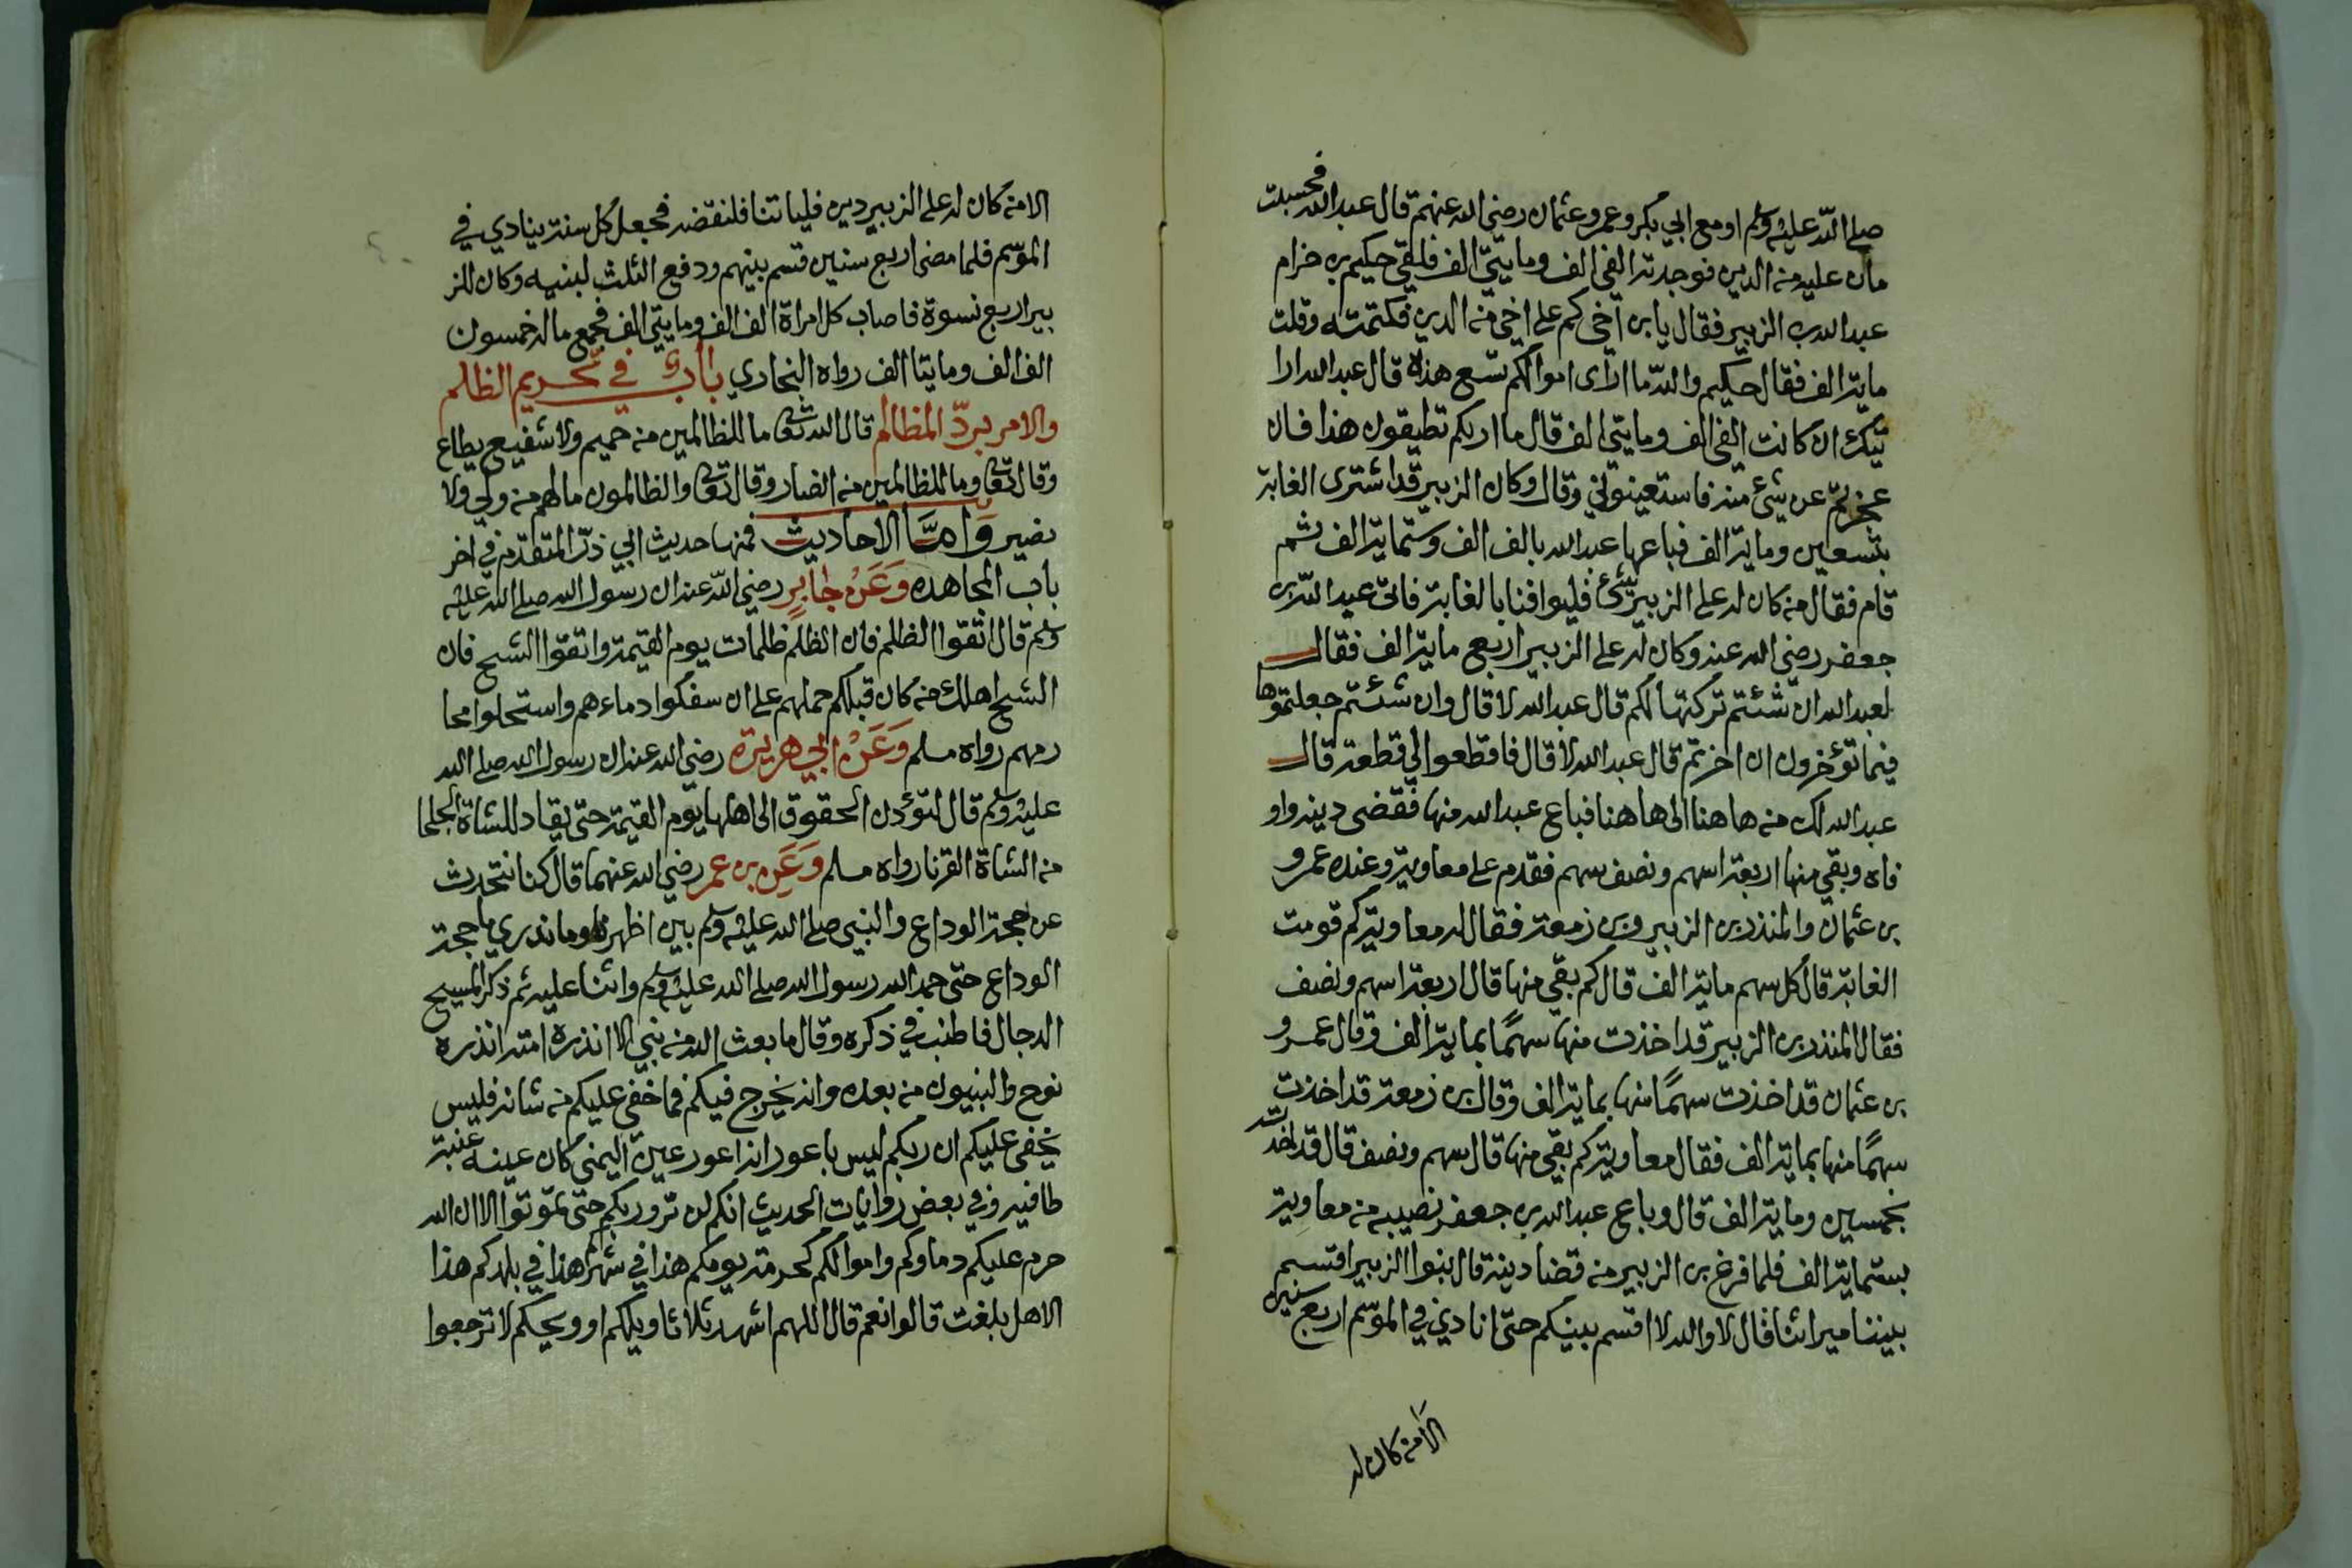 صلى الله عليه وسلم او مع ابي بكر وعمر وعثمان رضي الله عنهم قال عبد الله فحسبت
مان عليه من الدين فوجدته الفي الف ومايتي الف فلقي حكيم بن حزام
عبد الله بن الزبير فقال يا بن اخي كم على اخي من الدين فكتمته وقلت
ماية الف فقال حكيم والله ما ارى اموالكم تسع هذه قال عبد الله ارا
يتك ان كانت الفي الف ومايتي الف قال ما اريكم تطيقون هذا فان
عجزتم عن شيء منه فاستعينوني وقال وكان الزبير قد اشترى الغابة
بتسعين وماية الف فباعها عبد الله بالف الف وستماية الف ثم
قام فقال من كان له على الزبير شيء فليوافنا بالغابة فاتى عبد الله بن
جعفر رضي الله عنه وكان له على الزبير اربع ماية الف فقال
لعبد الله ان شئتم تركتها لكم قال عبد الله لا قال وان شئتم جعلتموها
فيما تؤخرون ان اخرتم قال عبد الله لا قال فاقطعوا لي قطعة قال
عبد الله لك من هاهنا الى هاهنا فباع عبد الله منها فقضى دينه واو
فاه وبقي منها اربعة اسهم ونصف سهم فقدم على معاوية وعنده عمرو
بن عثمان والمنذر بن الزبير وبن زمعة فقال له معاوية كم قومت
الغابة قال كل سهم ماية الف قال كم بقي منها قال اربعة اسهم ونصف
فقال المنذر بن الزبير قد اخذت منها سهمًا بماية الف وقال عمرو
بن عثمان قد اخذت سهمًا منها بماية الف وقال بن زمعة قد اخذت
سهمًا منها بماية الف فقال معاوية كم بقي منها قال سهم ونصف قال قد اخذت
بخمسين وماية الف قال وباع عبد الله بن جعفر نصيبه من معاوية
بستماية الف فلما فرغ بن الزبير من قضا دينة قال بنوا الزبير اقتسم
بيننا ميراثنا قال لا والله لا اقسم بينكم حتى انادي في الموسم اربع سنين
الا من كان له
الا من كان له على الزبير دين فلياتنا فلنقضه فجعل كل سنة ينادي في
الموسم فلما مضى اربع سنين قسم بينهم ودفع الثلث لبنيه وكان للز
بير اربع نسوة فاصاب كل امراة الف الف ومايتي الف فجمع ماله خمسون
الف الف ومايتا الف رواه البخاري باب في تحريم الظلم
والامر برد المظالم قال الله تعالى ما للظالمين من حميم ولا شفيع يطاع
وقال تعالى وما للظالمين من انصار وقال تعالى والظالمون ما لهم من ولي ولا
نصير واما الاحاديث فمنها حديث ابي ذر المتقدم في اخر
باب المجاهده وعن جابر رضي الله عنه ان رسول الله صلى الله عليه
وسلم قال اتقوا الظلم فان الظلم ظلمات يوم القيمة واتقوا الشح فان
الشح اهلك من كان قبلكم حملهم على ان سفكوا دماءهم واستحلوا محا
رمهم رواه مسلم وعن ابي هريرة رضي الله عنه ان رسول الله صلى الله
عليه وسلم قال لتؤدن الحقوق الى اهلها يوم القيمة حتى يقاد للشاة الجلحا
من الشاة القرنا رواه مسلم وعن بن عمر رضي الله عنهما قال كنا نتحدث
عن حجة الوداع والنبي صلى الله عليه وسلم بين اظهرنا وما ندري ما حجة
الوداع حتى حمد الله رسول الله صلى الله عليه وسلم واثنا عليه ثم ذكر المسيح
الدجال فاطنب في ذكره وقال ما بعث الله من نبي الا انذره امته انذره
نوح والنبيون من بعده وانه يخرج فيكم فما خفي عليكم من شانه فليس
يخفى عليكم ان ربكم ليس باعور انه اعور عين اليمنى كان عينه عنبة
طافيه وفي بعض روايات الحديث انكم لن تروا ربكم حتى تموتوا الا ان الله
حرم عليكم دماوكم واموالكم كحرمة يومكم هذا في شهركم هذا في بلدكم هذا
الا هل بلغت قالوا نعم قال اللهم اشهد ثلاثا ويلكم او ويحكم لا ترجعوا